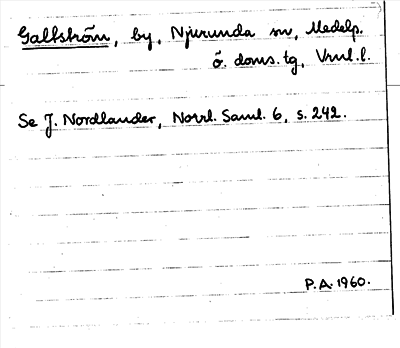 Galtström, by, Njurunda sn, Medelp.
ö. doms. tg, Vnrl. l.
Se J. Nordlander, Norrl. Saml. 6, s. 242.
P.A. 1960.